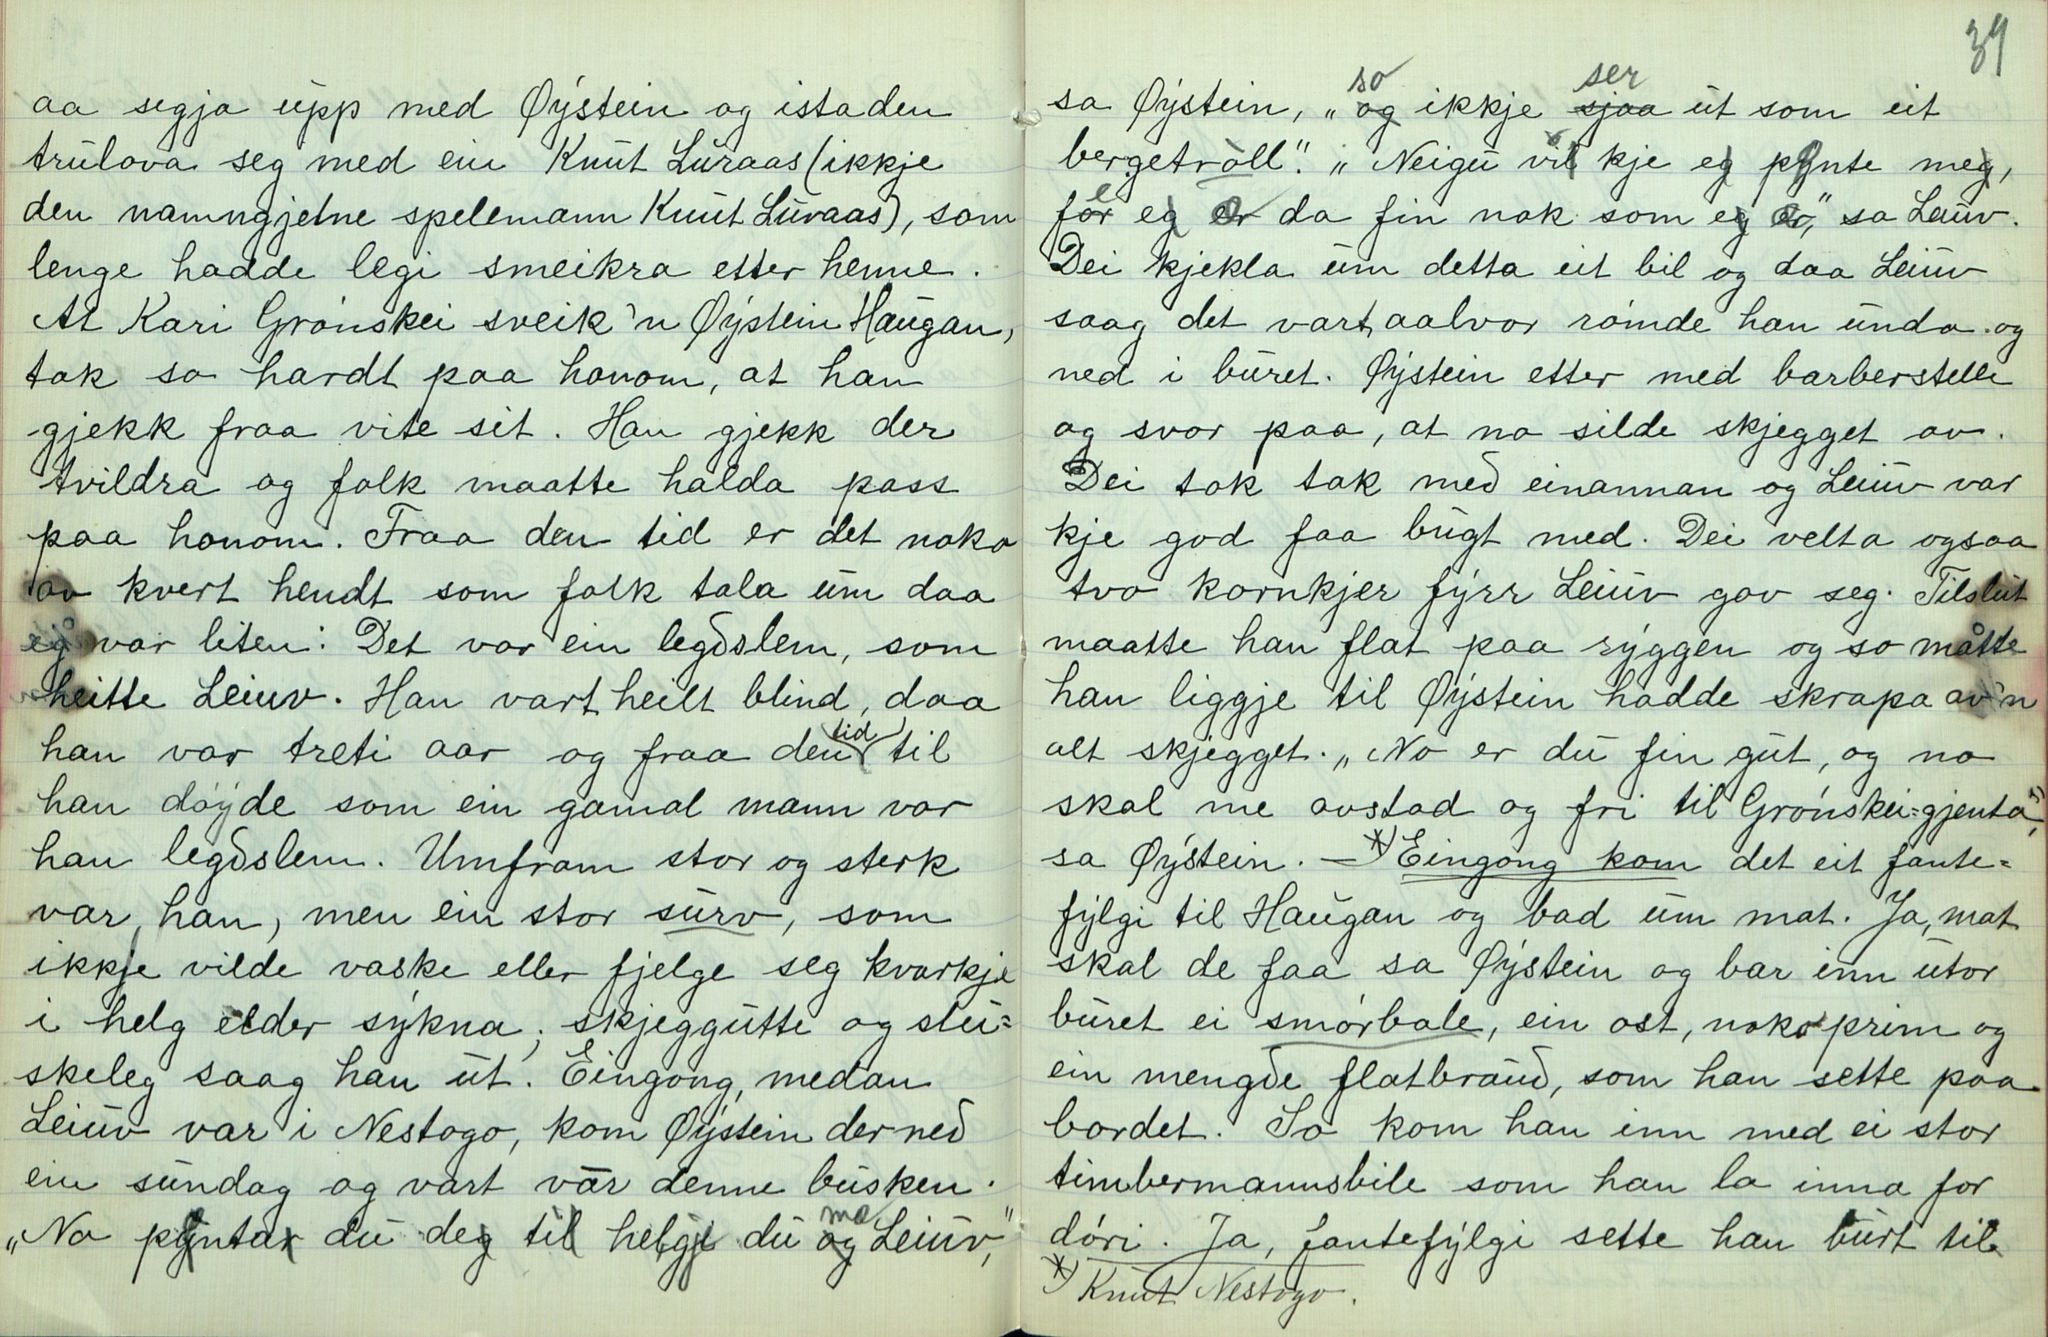 aa segja upp med Øystein og istaden
trulova seg med ein Knut Luraas (ikkje
den namngjetne spelemann Knut Luraas), som
lenge hadde legi smeikra etter henne.
At Kari Grónskei sveik'n Øystein Haugan,
tok so hardt paa honom, at han
gjekk fraa vite sit. Han gjekk der
tvildra og folk maatte halda pass
paa honom. Fraa den tid er det noko
av kvert hendt som folk tala um daa
eg var liten: Det var ein legðslem, som
heitte Leiuv. Han vart heilt blind, daa
han var treti aar og fraa den tid til
han døyde som ein gamal mann var
han legðslem. Umfram stor og sterk
var han, men ein stor surv, som
ikkje vilde vaske eller fjelge seg kvarkje
i helg elder sykna; skjeggutte og stu=
skeleg saag han ut. Eingong, medan
Leiuv var i Nestogo, kom Øystein der neð
ein sundag og vart vār denne busken.
„No pyntar du deg til helgji du mæ og Leiuv,"
39
sa Øystein, „so og ikkje ser sjaa ut som eit
bergetroll". „Neigu vil kje eg pynte meg,
før eg er da fin nok som eg er," sa Leiuv.
Dei kjekla um detta eit bil og daa Leiuv
saag det vart aalvor rómde han unda og
ned i buret. Øystein etter med barberstelle
og svor paa, at no silde skjegget av.
Dei tok tak með einannan og Leiuv var
kje god faa bugt med. Dei velta ogsaa
tvo kornkjer fyrr Leiuv gav seg. Tilslut
maatte han flat paa ryggen og so måtte
han liggje til Øystein hadde skrapa av'n
alt skjegget. „No er du fin gut, og no
skal me avstad og fri til Grónskei=gjenta,"
sa Øystein. — *) Eingong kom det eit fante=
fylgi til Haugan og bad um mat. Ja, mat
skal de faa sa Øystein og bar inn utor
buret ei smórbale, ein ost, noko prim og
ein mengðe flatbrauð, som han sette paa
bordet. So kom han inn med ei stor
timbermannsbile som han la inna for
dóri. Ja, fantefylgi sette han burt til
*) Knut Nestogo.